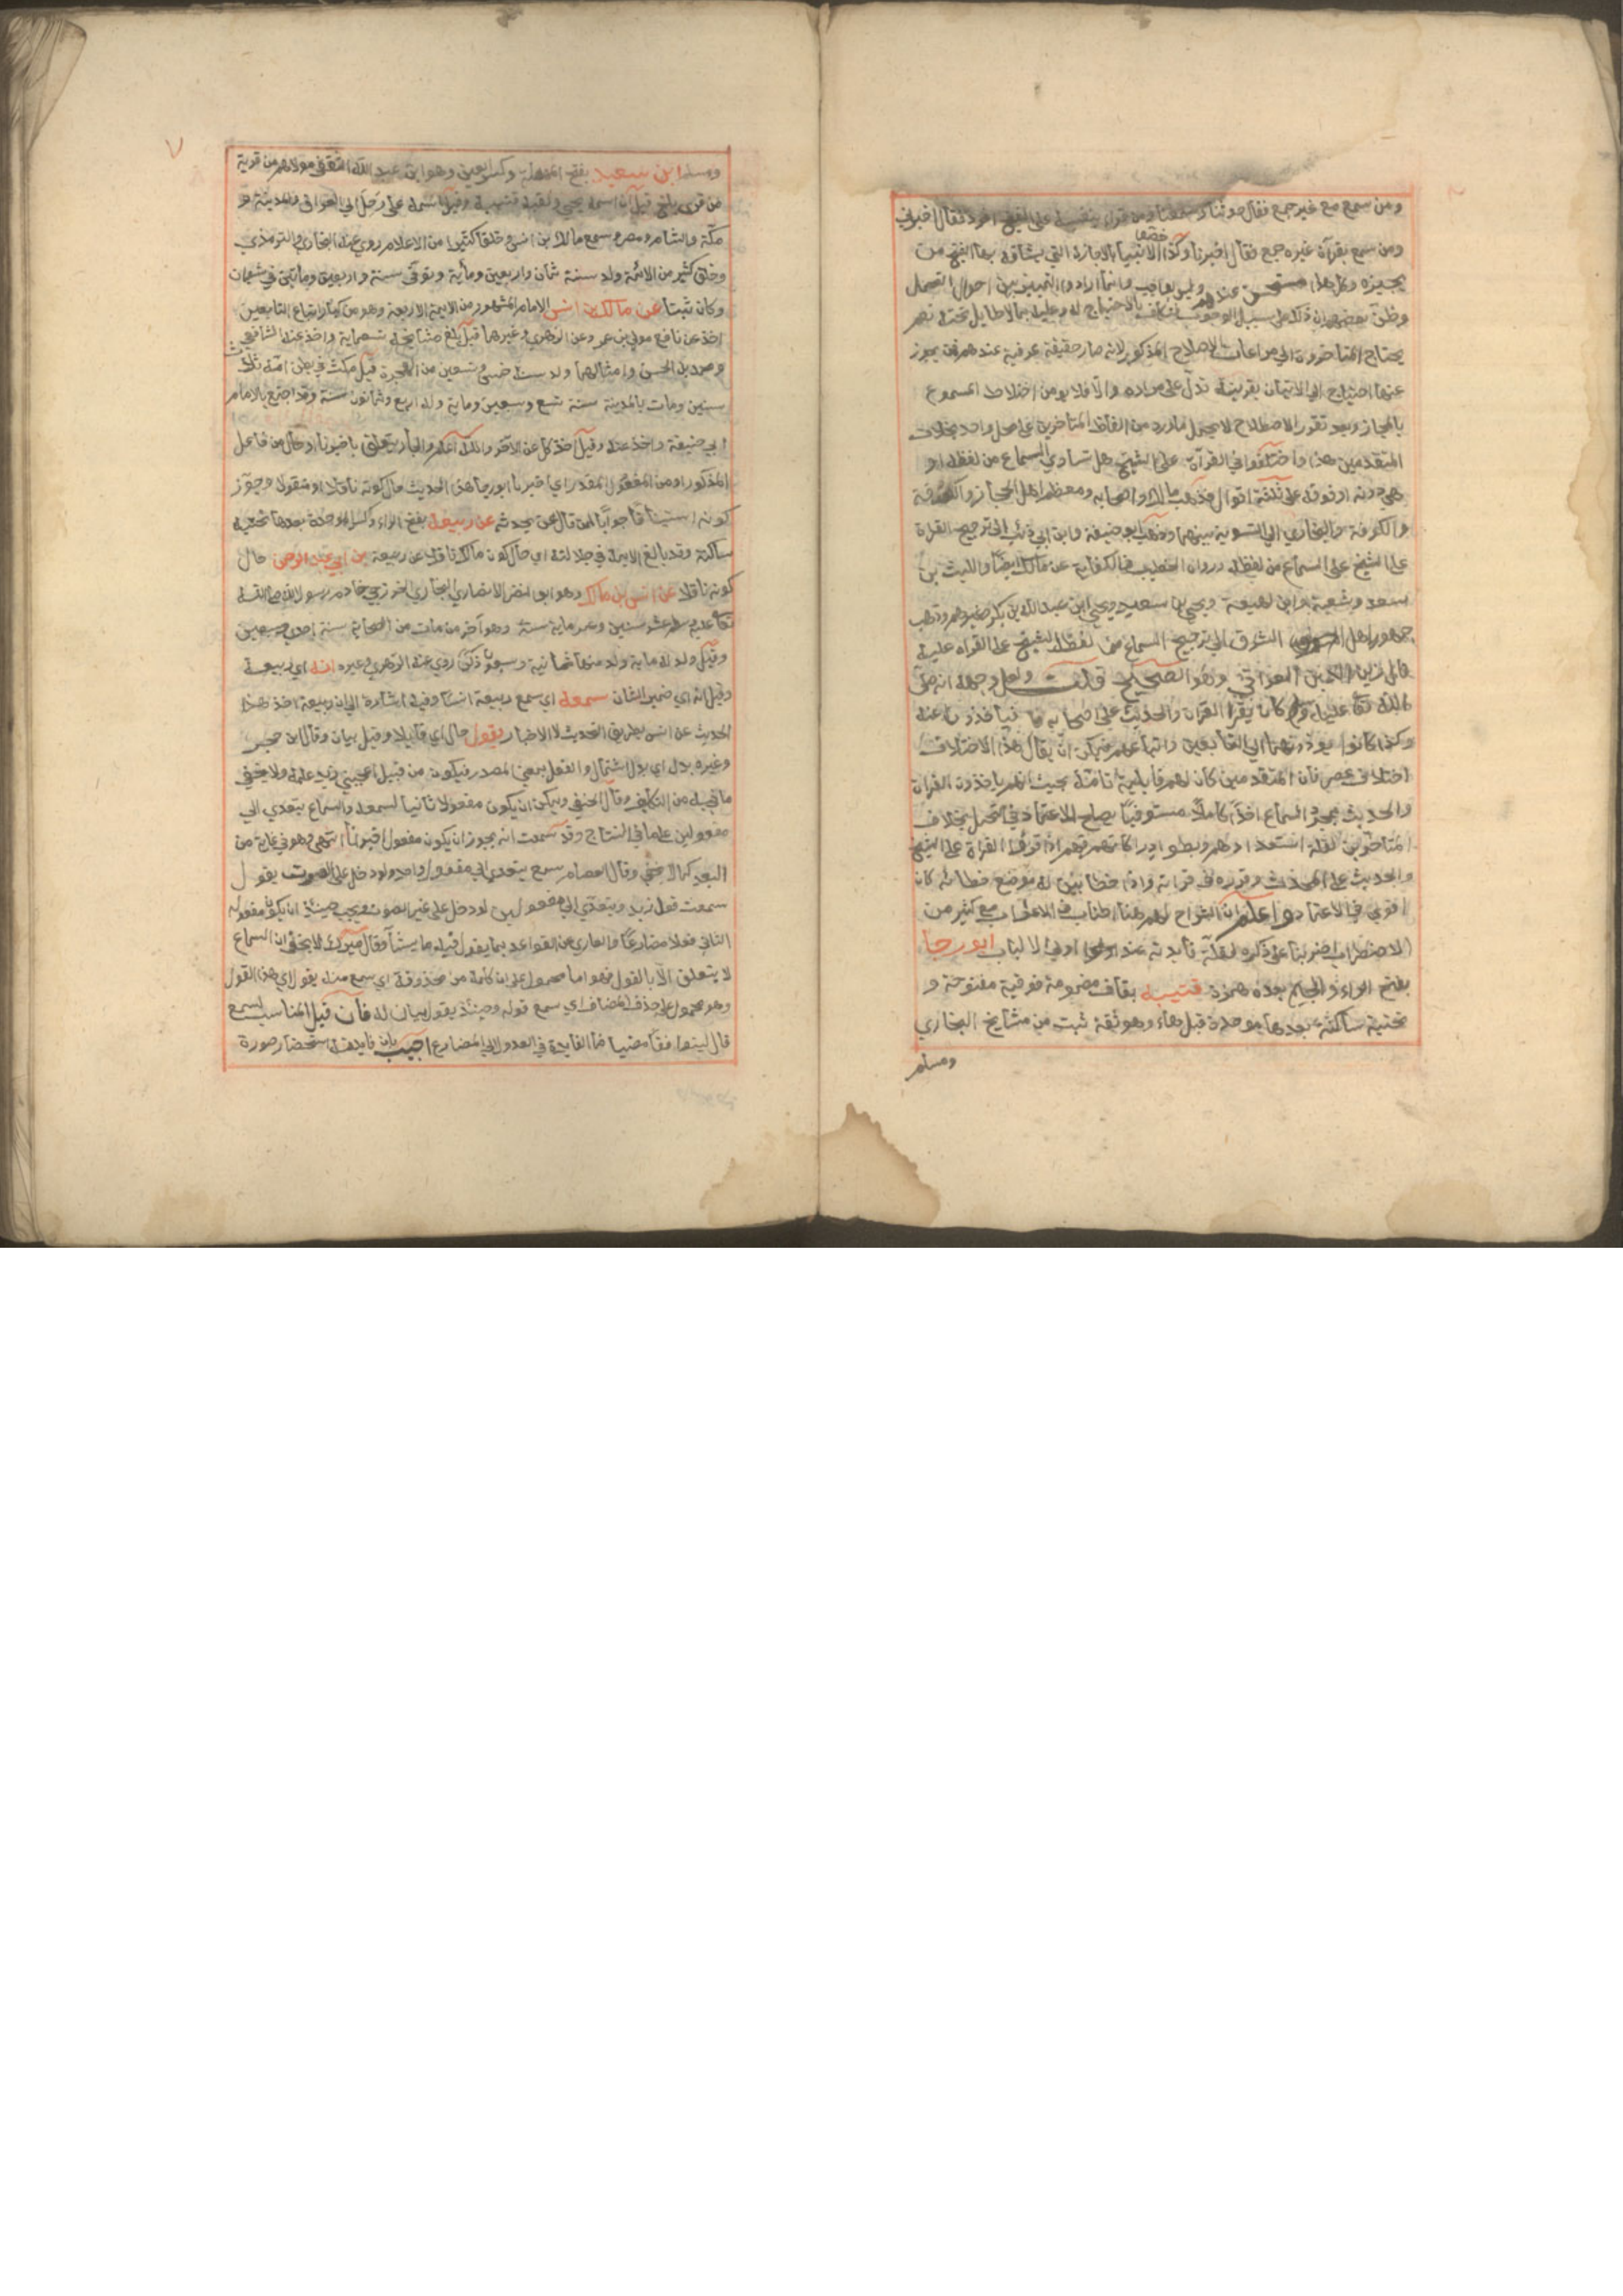 ومن سمع مع غير جمع فقال حدثنا ومن قرأ بنفسه على الشيخ افرد فقال اخبرني
ومن سمع بقرآة غيره جمع فقال اخبرنا وكذا خصصوا الانبياء بالاجازة التي يشافه بها الشيخ من
يجيزه وكل هذا مستحسن عندهم وليس بواجب وانما ارادوا التمييز بين احوال التحمل
وظن بعضهم ان ذلك على سبيل الوجوب فتكلف بالاحتجاج له وعليه بما لا طايل تحته نعم
يحتاج المتاخرون الى مراعات الاصطلاح المذكور لانه صار حقيقة عرفية عندهم فمن يجوز
عنها احتاج الى الاتيان بقرينة تدل على مراده والا فلا يومن اختلاط المسموع
بالمجاز وبعد تقرر الاصطلاح لا يحمل ما ورد من الفاظ المتاخرين على محل واحد بخلاف
المتقدمين هذا واختلفوا في القرآة على الشيخ هل تساوي السماع من لفظه او
هي دونه او فوقه على ثلثة اقوال فذهب مالك واصحابه ومعظم اهل الحجاز
والكوفة والبخاري الى التسوية بينهما وذهب ابو حنيفة وابن ابي ذئب الى ترجيح القراة
على الشيخ على السماع من لفظه ورواه الخطيب في الكفاية عن مالك ايضا والليث بن
سعد وشعبة وابن لهيعة ويحيى بن سعيد ويحيى ابن عبد الله بن بكير وغيرهم وذهب
جمهور اهل الشرق الى ترجيح السماع من لفظ الشيخ على القراه عليه
قال زين الدين العراقي وهو الصحيح قلت ولعل وجهه انه صلى
الله تعا عليه وسلم كان يقرأ القران والحديث على اصحابه فياخذون عنه
وكذا كانوا يودونهما الى التابعين واتباعهم فيمكن ان يقال هذا الاختلاف
اختلاف عصر فان المتقدمين كان لهم قابلية تامة بحيث انهم ياخذون القران
والحديث بمجرد السماع اخذا كاملا مستوفيا يصلح للاعتماد في التحمل بخلاف
المتاخرين لقلة استعدادهم وبطو ادراكاتهم فهم اذا قرؤا القراة على الشيخ
والحديث على المحدث وقرره في قراته واذا خطا بين له موضع خطائه كان
اقوى في الاعتماد واعلم ان الشراح لهم هنا اطناب في الاعراب مع كثير من
الاضطراب اضربنا عن ذكره لقلة فايدته عند اولى الالباب ابو رجا
بفتح الراء والجيم بعده همزة قتيبة بقاف مضمومة فوقية مفتوحة و
تحتية ساكنة بعدها موحدة قبل هاء وهو ثقة ثبت من مشايخ البخاري
ومسلم
٧
ومسلم ابن سعيد بفتح المهملة وكسر العين وهو ابن عبد الله الثقفي مولاهم من قرية
من قرى بلخ قيل ان اسمه يحيى ولقبه قتيبة وقيل اسمه علي رحل الى العراق والمدينة و
مكة والشام ومصر وسمع مالك بن انس وخلقا كثيرا من الاعلام روي عنه البخاري والترمذي
وخلق كثير من الائمة ولد سنة ثمان واربعين ومأية وتوفي سنة واربعين ومأتين في شعبان
وكان ثبتا عن مالك بن انس الامام المشهور من الايمة الاربعة وهو من كبار اتباع التابعين
اخذ عن نافع مولى بن عمر وعن الزهري وغيرهما قيل بلغ مشايخه تسعماية واخذ عنه الشافعي
ومحمد بن الحسن وامثالهما ولد سنة خمس وتسعين من الهجرة قيل مكث في بطن امه ثلاث
سنين ومات بالمدينة سنة تسع وسبعين ومأية وله اربع وثمانون سنة وقد اجتمع بالامام
ابي حنيفة واخذ عنه وقيل اخذ كل عن الآخر والله اعلم والجار يتعلق باخبرنا او حال من فاعل
المذكور او من المفعول المقدر اي اخبرنا ابو رجا هذا الحديث حال كونه ناقلا او منقولا وجوز
كونه استينافا جوابا لمن قال عمن يحدثه عن ربيعة بفتح الراء وكسر الموحدة بعدها تحتية
ساكنة وقد بالغ الايمة في جلالته اي حال كون مالك ناقلا عن ربيعة بن ابي عبد الرحمن حال
كونه ناقلا عن انس بن مالك وهو ابو النضر الانصاري البخاري الخزرجي خادم رسول الله صلى الله
تعا عليه وسلم عشر سنين وعمر ماية سنة وهو آخر من مات من الصحابة سنة احدى وتسعين
وقيل ولد له ماية ولد منها ثمانية وسبعون ذكرا روي عنه الزهري وغيره انه اي ربيعة
وقيل انه اي ضمير الشان سمعه اي سمع ربيعة انسا وفيه اشارة الى ان ربيعة اخذ هذا
الحديث عن انس بطريق التحديث لا الاخبار يقول حال اي قايلا وقيل بيان وقال ابن حجر
وغيره بدل اي بدل اشتمال والفعل بمعنى المصدر فيكون من قبيل اعجبني زيد علمه ولا يخفي
ما فيه من التكلف وقال الحنفي ويمكن ان يكون مفعولا ثانيا لسمعه والسماع يتعدي الى
مفعولين على ما في التاج وقد سمعت انه يجوز ان يكون مفعول اخبرنا انتهى وهو في غاية من
البعد كما لا يخفي وقال العصام سمع يتعدي الى مفعول واحد لو دخل على الصوت يقول
سمعت قول زيد ويتعدي الى مفعولين لو دخل على غير الصوت ويجب حينئذ ان يكون مفعوله
الثاني فعلا مضارعا والعاري عن القواعد بما يقول فيه ما يشأ وقال ميرك لا يخفي ان السماع
لا يتعلق الا بالقول فهو اما محمول على ان كلمة من محذوفة اي سمع منه يقول اي هذا القول
وهو محمول على حذف المضاف اي سمع قوله وحينئذ يقول بيان له فان قيل المناسب لسمع
قال لينوافقا مضيا فما الفايدة في العدول الى المضارع اجيب بان فايدته استحضار صورة